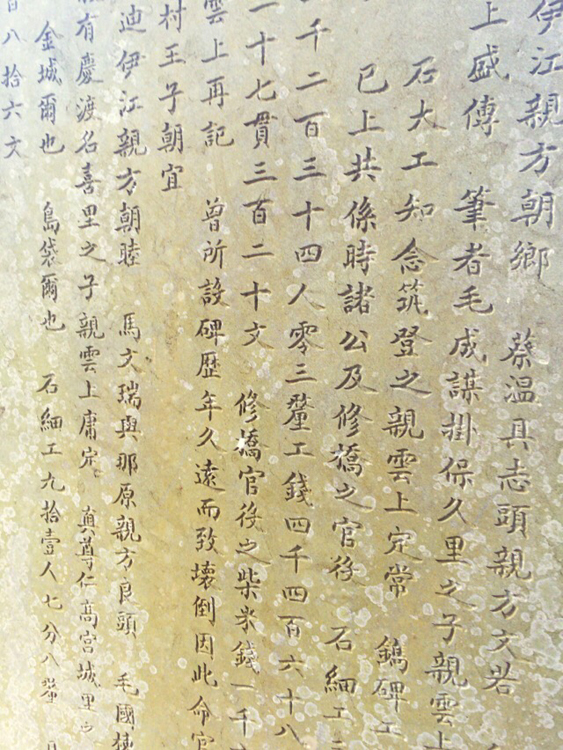 伊江親方朝鄉 蔡温具志頭親方文若
上盛傳 筆者毛成謀掛保久里之子親雲上
石大工知念筑登之親雲上定常 鐫碑工
已上共係時諸公及修橋之官後 石細工
千二百三十四人零三釐工錢四千四百六十八
一十七貫三百二十文 修橋官役之柴米錢一千
雲上再記 曾所設碑歷年久遠而致壞倒因此命官
村王子朝宜
迪伊江親方朝睦 馬文瑞與那原親方良頭 毛國棟
有慶渡名喜里之子親雲上庸定 真尊仁高宮城里之
金城爾也 島袋爾也 石細工九拾壹人七分八釐
百八拾六文